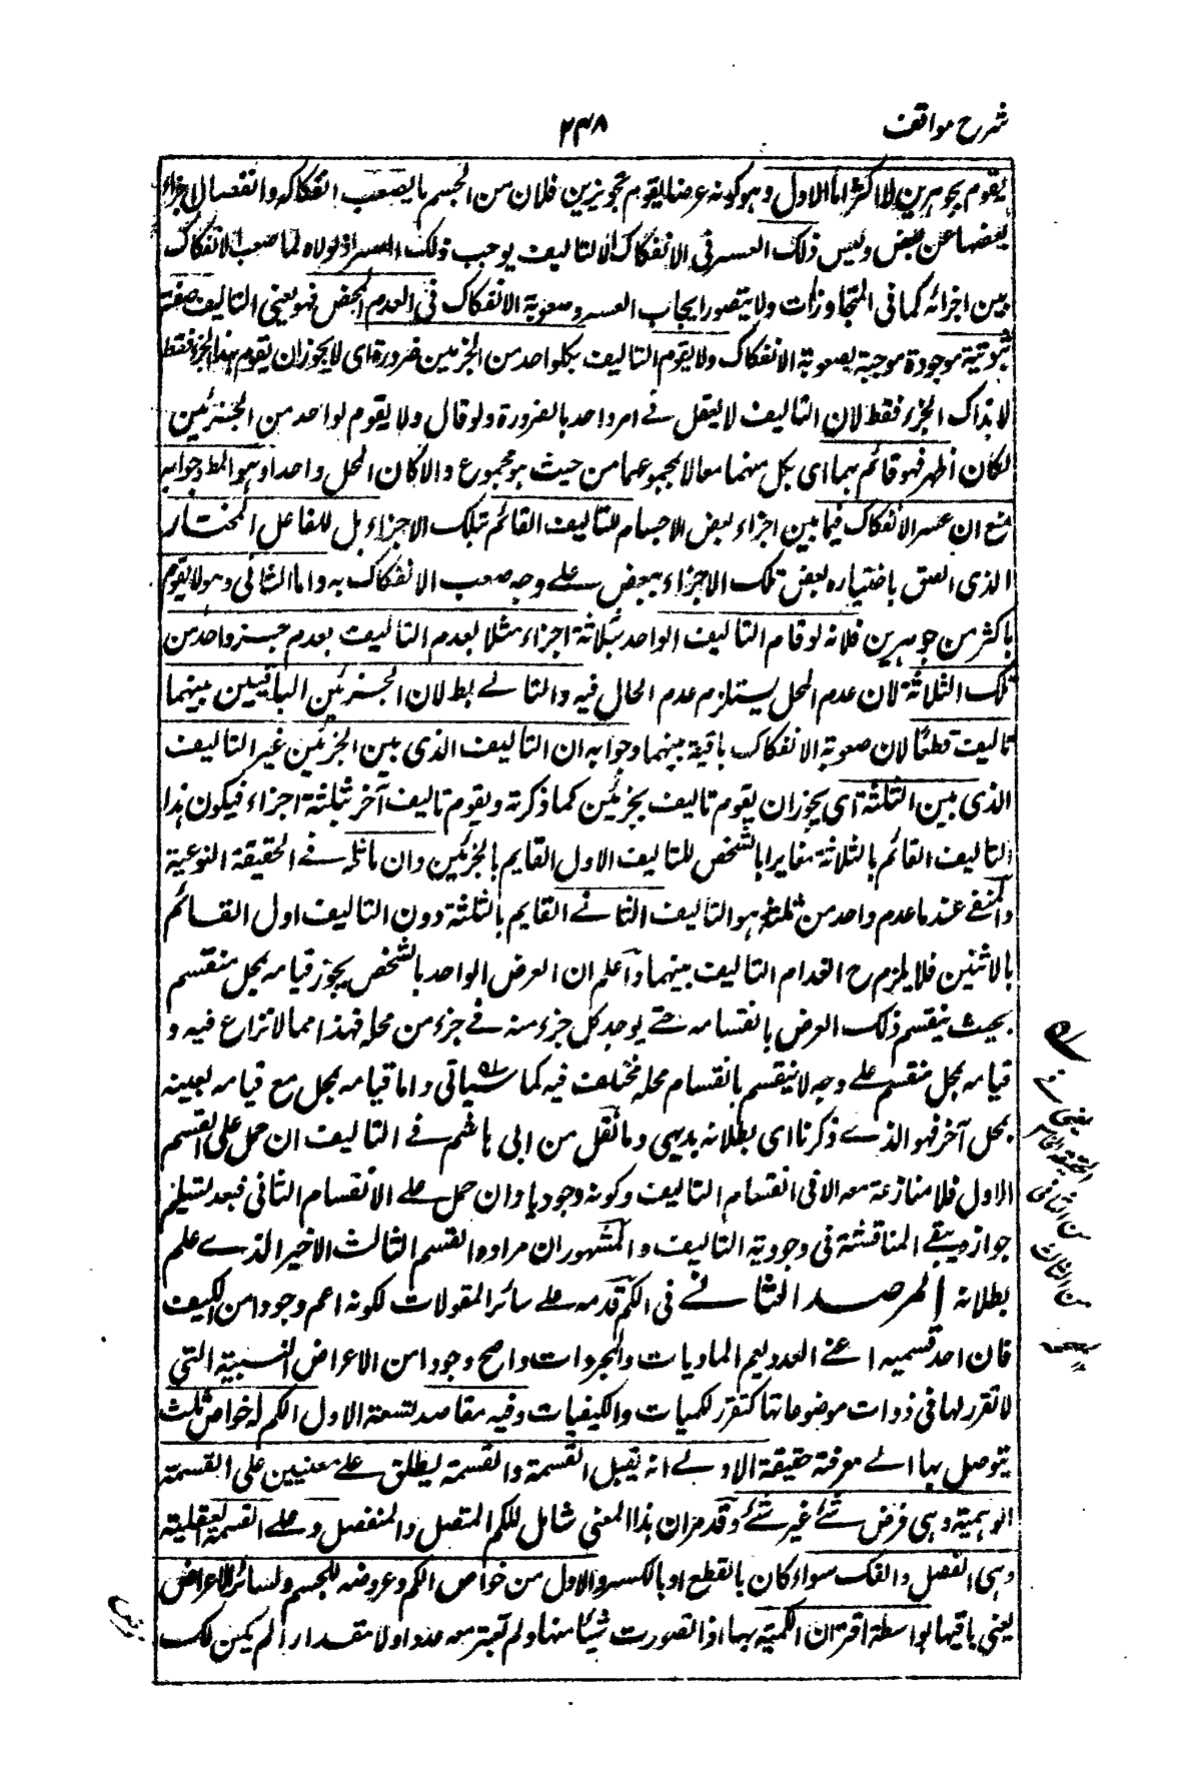 شرح مواقف
۲۳۸
يقوم بجوهرين لا اكثر اما الاول وهو كونه عرضا يقوم بجوهرين فلان من الجسم ما يصعب انفكاكه وانفصال اجزاء
بعضها عن بعض وليس ذلك العسر فى الانفكاك الا لتاليف يوجب ذلك العسر اذ لولاه لما صعب الانفكاك
بين اجزائه كما فى المتجاورات ولا يتصور ايجاب العسر وصعوبة الانفكاك فى العدم المحض فهو يعنى التاليف صفة
ثبوتية موجودة موجبة لصعوبة الانفكاك ولا يقوم التاليف بكلواحد من الجزئين ضرورة اى لا يجوز ان يقوم بهذا الجزء فقط
لا بذاك الجزء فقط لان التاليف لا يعقل فے امر واحد بالضرورة ولو قال ولا يقوم لواحد من الجزئين
لكان اظهر فهو قائم بهما اى بكل منهما معا لا بمجموعهما من حيث هو مجموع والا كان المحل واحدا وهو المط وجوابه
منع ان عسر الانفكاك فيما بين اجزاء بعض الاجسام للتاليف القائم بتلك الاجزاء بل للفاعل المختار
الذى الصق باختياره بعض تلك الاجزاء ببعض علے وجه صعب الانفكاك به واما الثانى وهو لا يقوم
باكثر من جوهرين فلانه لو قام التاليف الواحد بثلاثة اجزاء مثلا لعدم التاليف بعدم جزء واحد من
تلك الثلاثة لان عدم المحل يستلزم عدم الحال فيه والتالے بط لان الجزئين الباقيين بينهما
تاليف قطعًا لان صعوبة الانفكاك باقية بينهما وجوابه ان التاليف الذى بين الجزئين غير التاليف
الذى بين الثلثة اى يجوز ان يقوم تاليف بجزئين كما ذكرته ويقوم تاليف آخر بثلثة اجزاء فيكون هذا
التاليف القائم بالثلاثة مغايرا بالشخص للتاليف الاول القايم بالجزئين وان ماثله فے الحقيقة النوعية
والمنفے عند ما عدم واحد من ثلثة هو التاليف الثانے القايم بالثلثة دون التاليف اول القائم
بالاثنين فلا يلزم ح انعدام التاليف بينهما واعلم ان العرض الواحد بالشخص يجوز قيامه بمحل منقسم
بحيث ينقسم ذلك العرض بانقسامه حتے يوجد كل جزء منه فے جزء من محله فهذا مما لا نزاع فيه و
قيامه بمحل منقسم علے وجه لا ينقسم بانقسام محله مختلف فيه كما سياتى واما قيامه بمحل مع قيامه بعينه
بمحل آخر فهو الذے ذكرنا اى بطلانه بديهى وما نقل من ابى هاشم فے التاليف ان حمل على القسم
الاول فلا منازعة معه الا فى انقسام التاليف وكونه وجوديا وان حمل علے الانقسام الثانى فبعد تسليم
جوازه يبقے المناقشة فى وجودية التاليف والمشهور ان مراده القسم الثالث الاخير الذے علم
بطلانه المرصد الثانے فى الكم قدمه علے سائر المقولات لكونه اعم وجودا من الكيف
فان احد قسميه اعنے العدد يعم الماديات والمجردات واصح وجودا من الاعراض النسبية التى
لا تقرر لها فى ذوات موضوعاتها كتقرر للكميات والكيفيات وفيه مقاصد تسعة الاول الكم له خواص ثلث
يتوصل بها الے معرفة حقيقة الاولے انه يقبل القسمة والقسمة يطلق علے معنيين على القسمة
الوهمية وهى فرض شئ غير شئ وقد مر ان هذا المعنى شامل للكم المتصل والمنفصل وعلے القسمة العقلية
وهى الفصل والفك سواء كان بالقطع او بالكسر والاول من خواص الكم وعروضه للجسم ولسائر الاعراض
يعنى باقيها بواسطة اقتران الكمية بها اذا تصورت شيئا منها ولم تعتبر معه عددا ولا مقدارا لم يكن لك